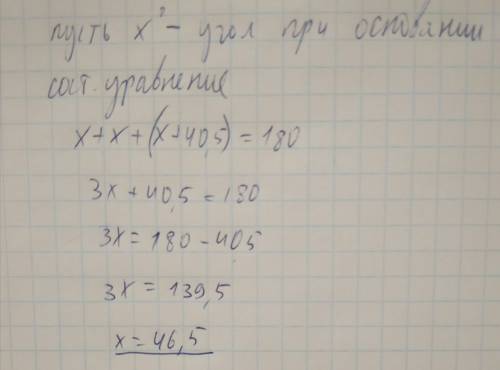 пусть x° - угол при основании
сост. уравнение
x + x + (x + 40,5) = 180
3x + 40,5 = 180
3x = 180 - 40,5
3x = 139,5
x = 46,5